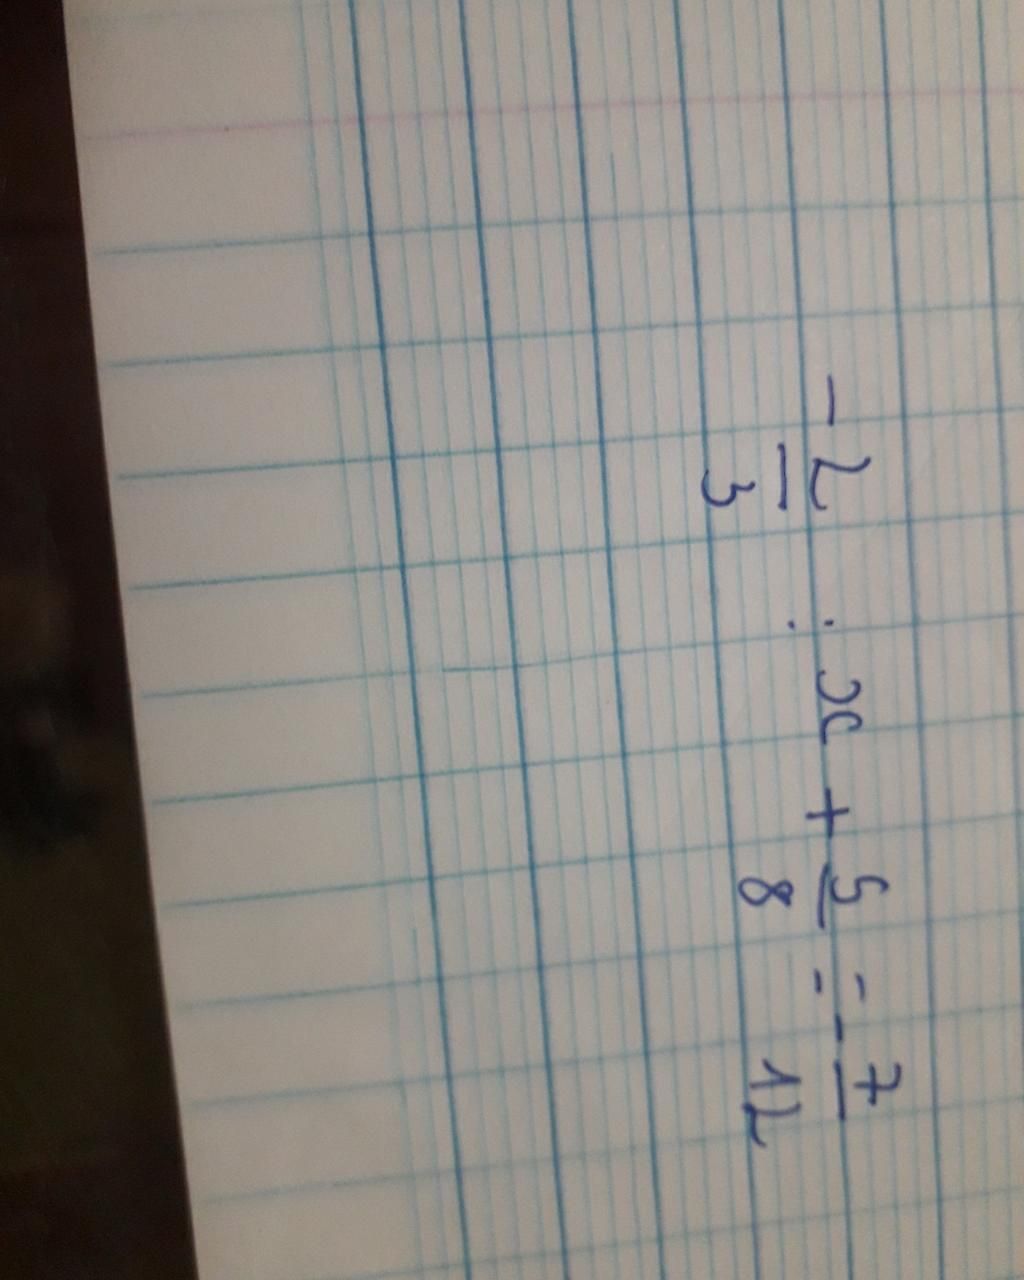 -2/3 : x + 5/8 = -7/12